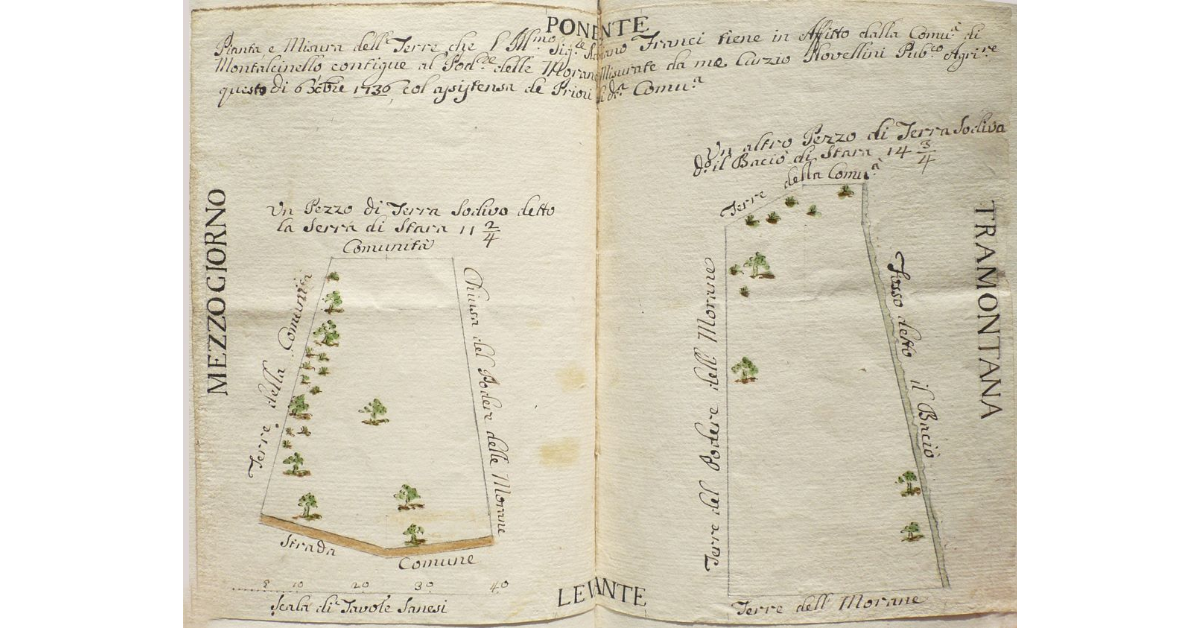 PONENTE
Pianta e Misura dell.e Terre che l' Ill.mo Sig.re Franci tiene in Affitto dalla Comu.à di
Montalcinello contigue al Pod.e delle Morane Misurate da me Curzio Novellini Pub.co Agri.re
questo di 6 Xbre 1736, col assistensa de Priori di d.a Comu.a
MEZZOGIORNO
Un Pezzo di Terra Sodivo detto
la Serra di Stara 11 2/4
Comunità
Terre della Comunità
Chiusa del Podere delle Morane
Strada Comune
8 10 20 30 40
Scala di Tavole Sanesi
Un altro Pezzo di Terra Sodiva
d.o il Baciò di Stara 14 3/4
Terre della Comu.à
Terre del Podere dell Morane
Fosso detto il Baciò
Terre dell Morane
TRAMONTANA
LEVANTE